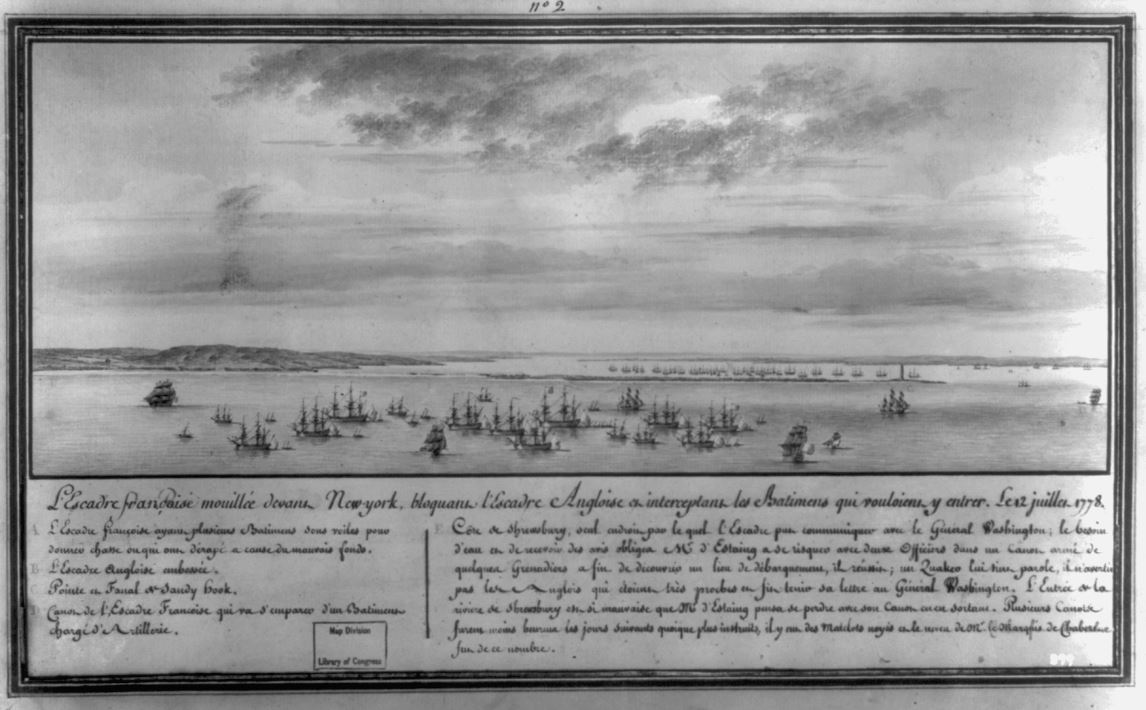 nº 2
L'Escadre françoise mouillée devant New-york, bloquant l'Escadre Angloise et interceptant les Batimens qui vouloient y entrer. Le 12 juillet 1778.
A L'Escadre françoise ayant plusieurs Batimens sous voiles pour
donner chasse ou qui ont dérapé a cause du mauvais fonds.
B L'Escadre Angloise embossée.
C Pointe et Fanal de Sandy hook.
D Canot de l'Escadre Francoise qui va s'emparer d'un Batiment
chargé d'Artillerie.
E Côte de Shrewsbury, seul endroit par le quel l'Escadre put communiquer avec le Général Washington; le besoin
d'eau et de recevoir des avis obligea Mr. d'Estaing a se risquer avec deux Officiers dans un Canot armé de
quelques Grenadiers a fin de découvrir un lieu de débarquement, il réussit; un Quaker lui tint parole, il n'avertit
pas les Anglois qui étoient très proches et fit tenir sa lettre au Général Washington. L'Entrée de la
rivière de Shrewsbury est si mauvaise que Mr. d'Estaing pensa se perdre avec son Canot en en sortant. Plusieurs Canots
furent moins heureux les jours suivants quoique plus instruits, il y eut des Matelots noyés et le neveu de Mr. le Marquis de Chabert
fut de ce nombre.
Map Division
Library of Congress
899